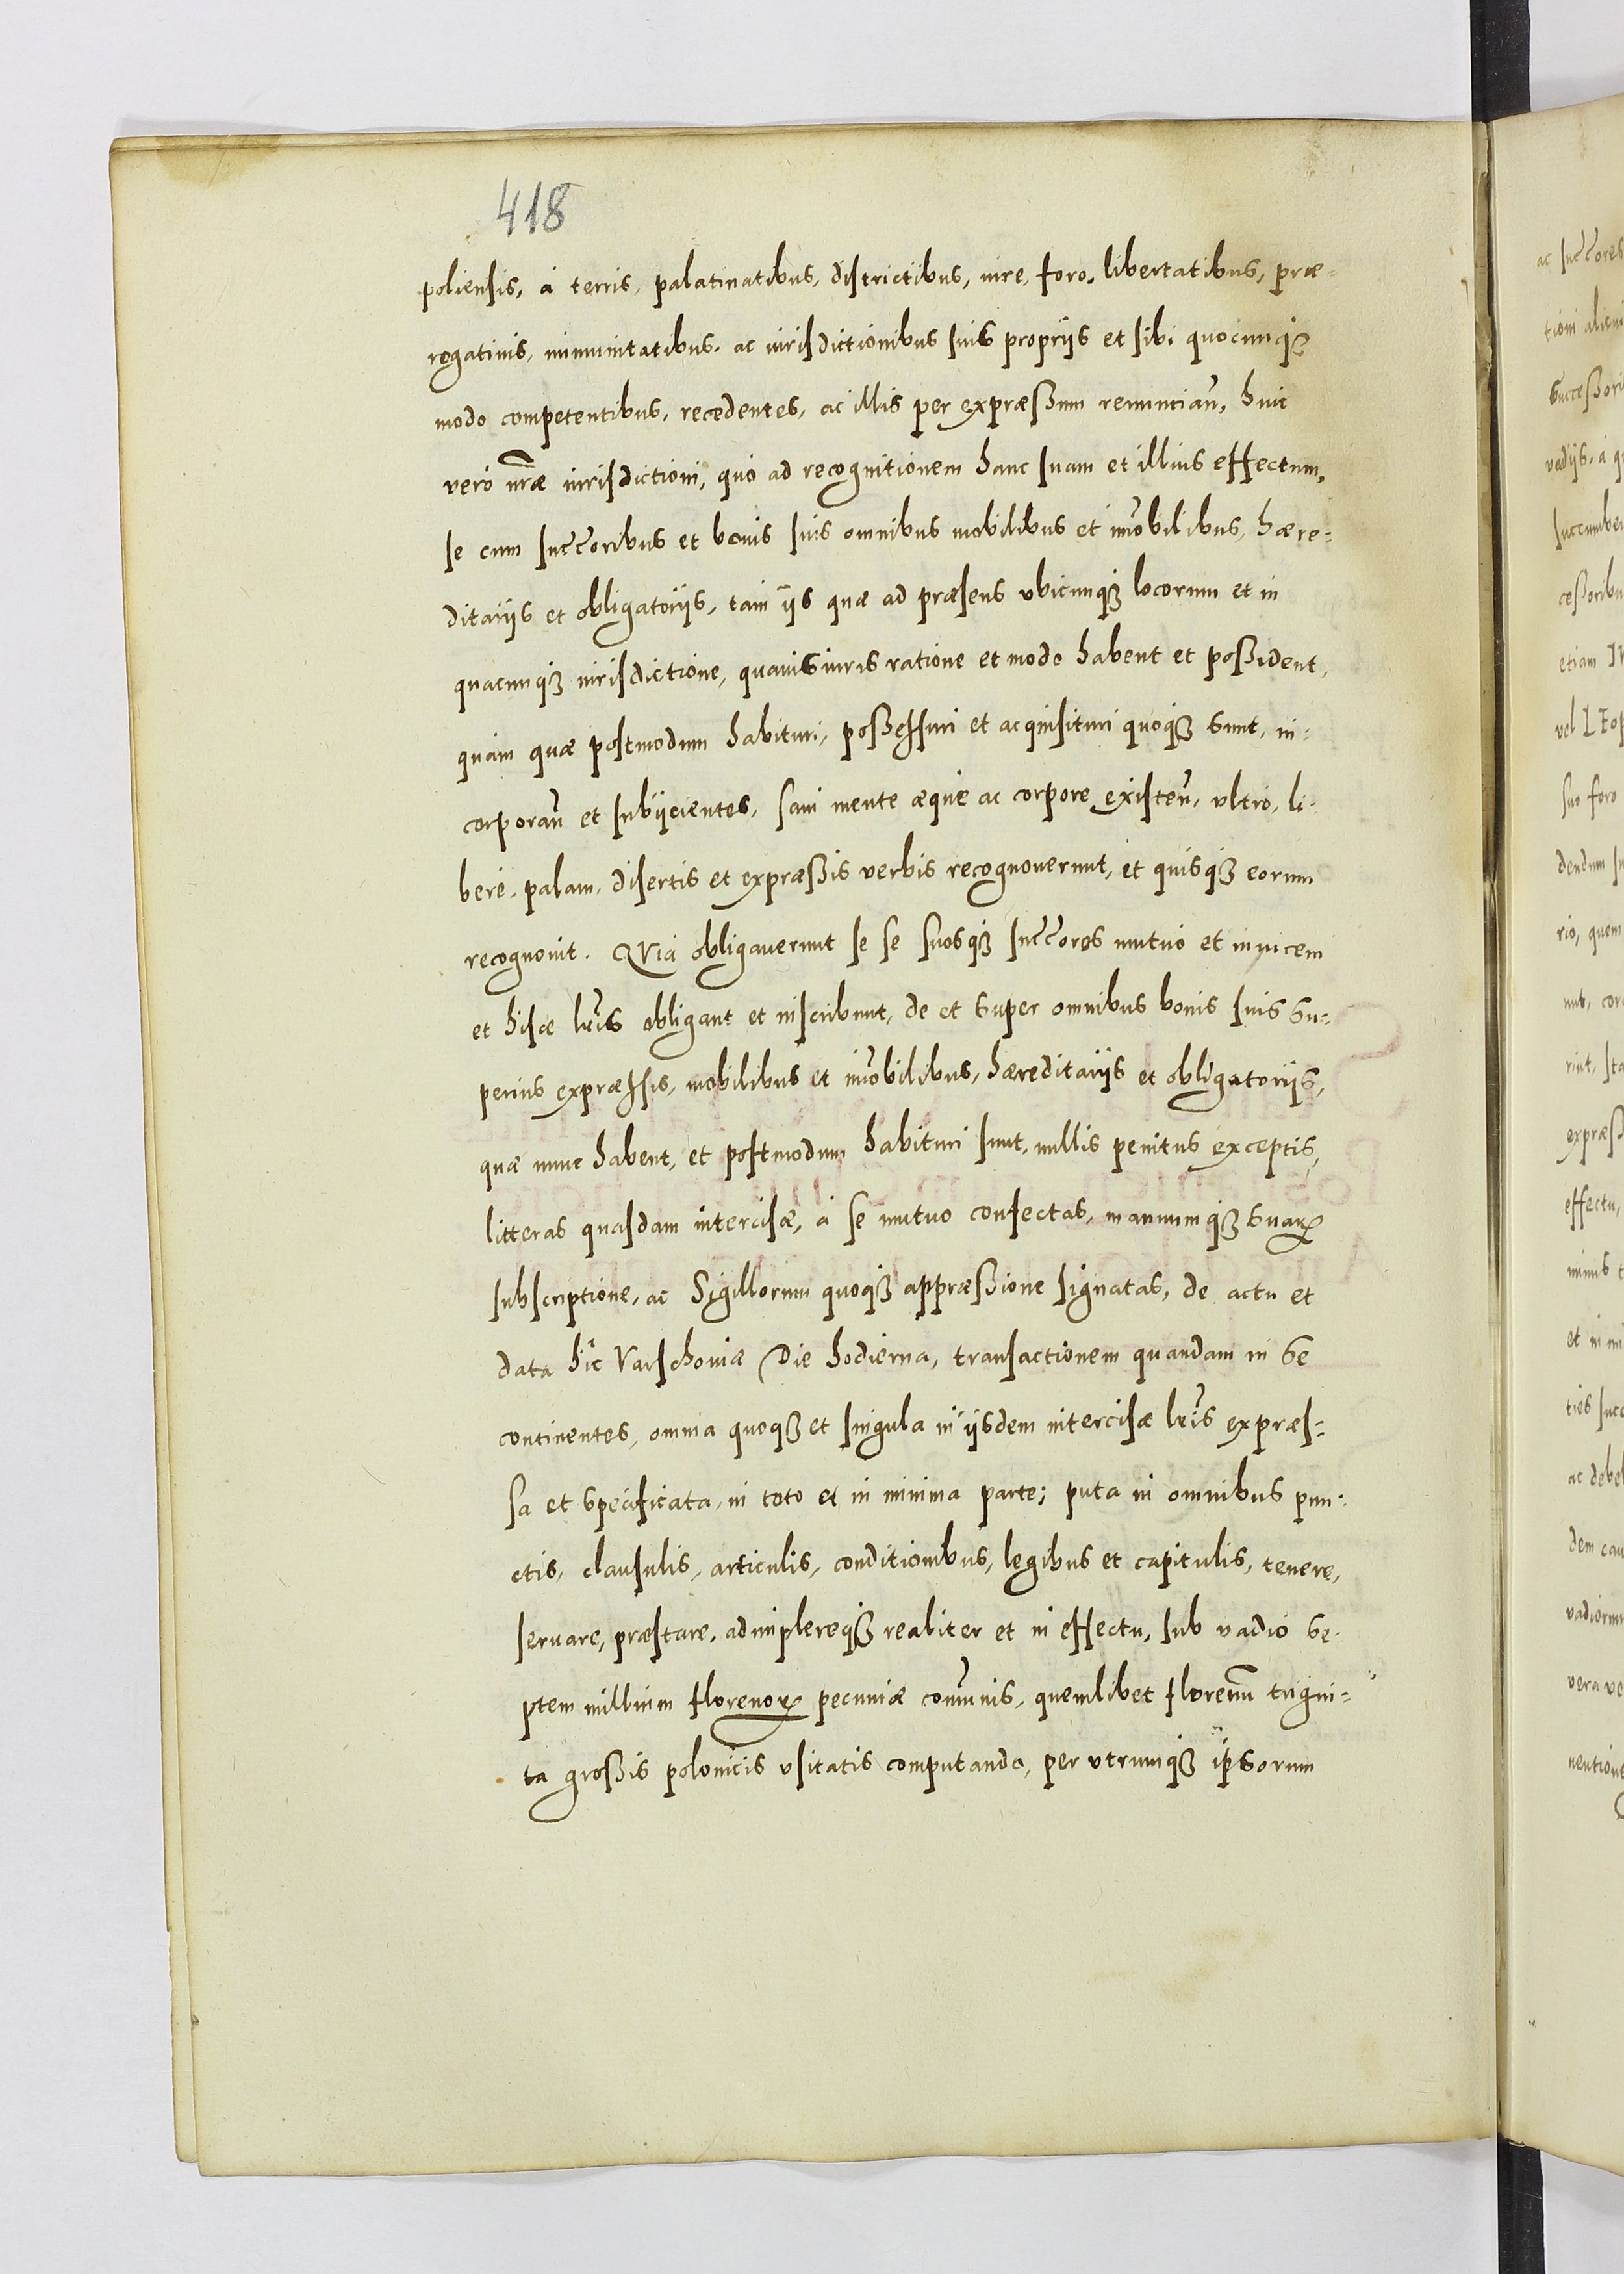 418
poliensis, à terris, palatinatibus, districtibus, iure, foro, libertatibus, præ-
rogatiuis, immunitatibus, ac iurisdictionibus suis proprijs et sibi quocunq;
modo competentibus, recedentes, ac illis per expræßum renuncian̄, huic
verò nr̄æ iurisdictioni, quò ad recognitionem hanc suam et illius effectum,
se cum succ̄oribus et bonis suis omnibus mobilibus et im̄obilibus, hære-
ditarijs et obligatorijs, tam ijs quæ ad præsens vbicunq; locorum et in
quacunq; iurisdictione, quauis iuris ratione et modo habent et poßident,
quàm quæ postmodum habituri, poßessuri et acquisituri quoq; sunt, in-
corporan̄ et subijcientes, sani mente æquè ac corpore existen̄, vltrò, li-
berè, palam, disertis et expræßis verbis recognouerunt, et quisq; eorum
recognouit. QVià obligauerunt se se suosq; succ̄ores mutuò et inuicem
et hisce lr̄is obligant et inscribunt, de et super omnibus bonis suis su-
perius expræssis, mobilibus et im̄obilibus, hæreditarijs et obligatorijs,
quæ nunc habent, et postmodum habituri sunt, nullis penitus exceptis,
litteras quasdam intercisæ, à se mutuo confectas, manuumq; suaꝝ
subscriptione, ac Sigillorum quoq; appræßione signatas, de actu et
data hîc Varschouiæ Die hodierna, transactionem quandam in se
continentes, omnia quoq; et singula in ijsdem intercisæ lr̄is expræs-
sa et specificata, in toto et in minima parte; puta in omnibus pun-
ctis, clausulis, articulis, conditionibus, legibus et capitulis, tenere,
seruare, præstare, adimplereq; realiter et in effectu, sub vadio se-
ptem millium florenoꝝ pecuniæ com̄unis, quemlibet floren̄um trigin-
ta großis polonicis vsitatis computando, per vtrumq; ipsorum